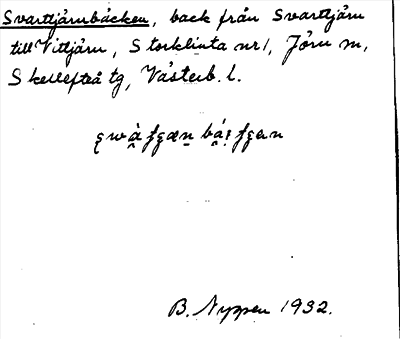 Svarttjärnbäcken, bäck från Svarttjärn
till Vittjärn, Storklinta nr 1, Jörn sn,
Skellefteå tg, Västerb. l.
B. Nyppen 1932.